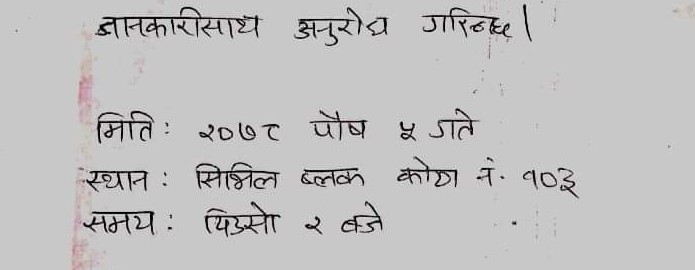 जानकारीसाथ अनुरोध गरिन्छ।
मिति: २०७८ पौष ५ गते
स्थान: सिभिल ब्लक कोठा नं. १०३
समय: दिउसो २ बजे